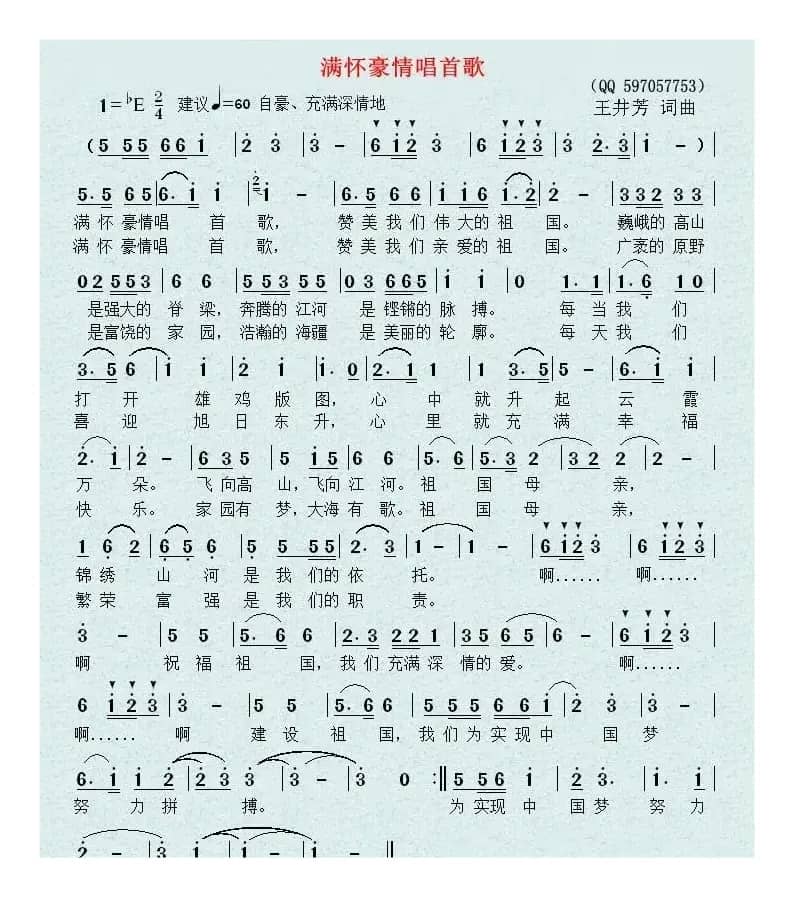 满怀豪情唱首歌
（QQ 597057753）
1=♭E 2/4 建议♩=60 自豪、充满深情地
王井芳 词曲
（5 55 66 1 | 2 3 | 3 - | 6 12 3 | 6 12 3 | 3 2·3 | 1 - ）|
5·5 65 | 6·1 1 | 1 - | 6·5 66 | 1 16 1·2 | 2 - | 333 22 |
满 怀 豪情唱 首 歌， 赞 美 我 们 伟 大 的 祖 国。 巍峨的 高山
满 怀 豪情唱 首 歌， 赞 美 我 们 亲 爱 的 祖 国。 广袤的 原野
02 553 | 6 6 | 553 55 | 03 665 | 1 1 | 0 1·1 | 1·6 10 |
是强大的 脊 梁，奔腾的 江河 是 铿锵的 脉 搏。 每 当 我 们
是富饶的 家 园，浩瀚的 海疆 是 美丽的 轮 廓。 每 天 我 们
3·5 6 1 | 2 1 | 1·0 2·1 | 1· 3 | 5 - | 6 1 1 |
打 开 雄 鸡 版 图，心 中 就 升 起 云 霞
喜 迎 旭 日 东 升，心 里 就 充 满 幸 福
2·1 | 2 - | 635 5 | 555 3 | 5·6 | 5·32 | 322 | 2 - |
万 朵。 飞 向高 山，飞向 江 河。祖 国 母 亲，
快 乐。 家 园有 梦，大海 有 歌。祖 国 母 亲，
1 62 | 65 6 | 5 55 | 2·3 | 1 - | 1 - | 6 12 3 | 6 12 3 |
锦 绣 山 河 是 我 们的 依 托。 啊…… 啊……
繁 荣 富 强 是 我 们的 职 责。
3 - | 5 5 | 5·6 6 | 2·3 221 | 35 65 | 6 - | 6 12 3 |
啊 祝 福 祖 国，我 们 充满 深 情 的 爱。 啊……
6 12 3 | 3 - | 5 5 | 5·6 6 | 555 6 | 56 12 | 2 3 |
啊…… 啊 建 设 祖 国，我 们 为 实 现 中 国 梦
6·1 | 1 2 | 2 3 | 3 - | 3 0 :‖ 5 56 1 | 2 3 | 1· 1 |
努 力 拼 搏。 为 实现 中 国 梦 努 力
2 - | 2 3 | 3 - | 3 - ‖